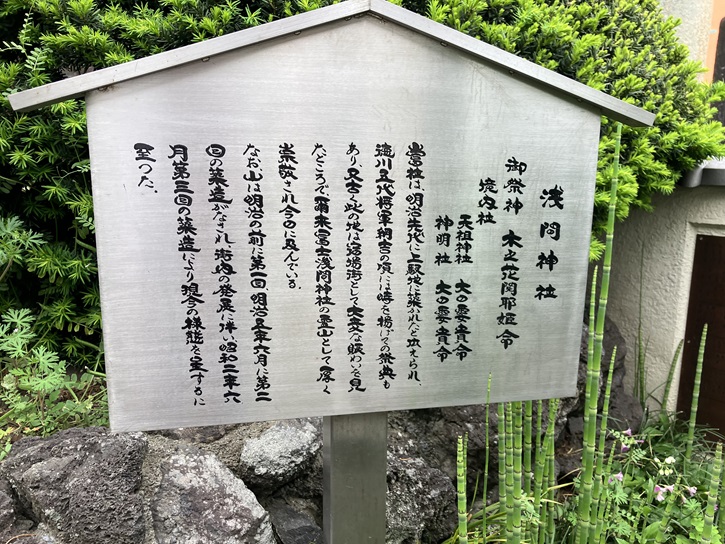 浅間神社
御祭神 木之花開耶姫命
境内社
天祖神社 大日孁貴命
神明社 大日孁貴命
当社は、明治先代に上駅地に築かれたと伝えられ、
徳川五代将軍綱吉の頃には時を掲げての祭典も
あり、又古く此の地は宿場街として大変な賑わいを見
たところで、爾来富士浅間神社の霊山として厚く
崇敬され今日に及んでいる。
なお山は明治の前に第一回、明治五年六月に第二
回の築造がなされ、街内の発展に伴い昭和二年六
月第三回の築造により現今の様態を呈するに
至つた。